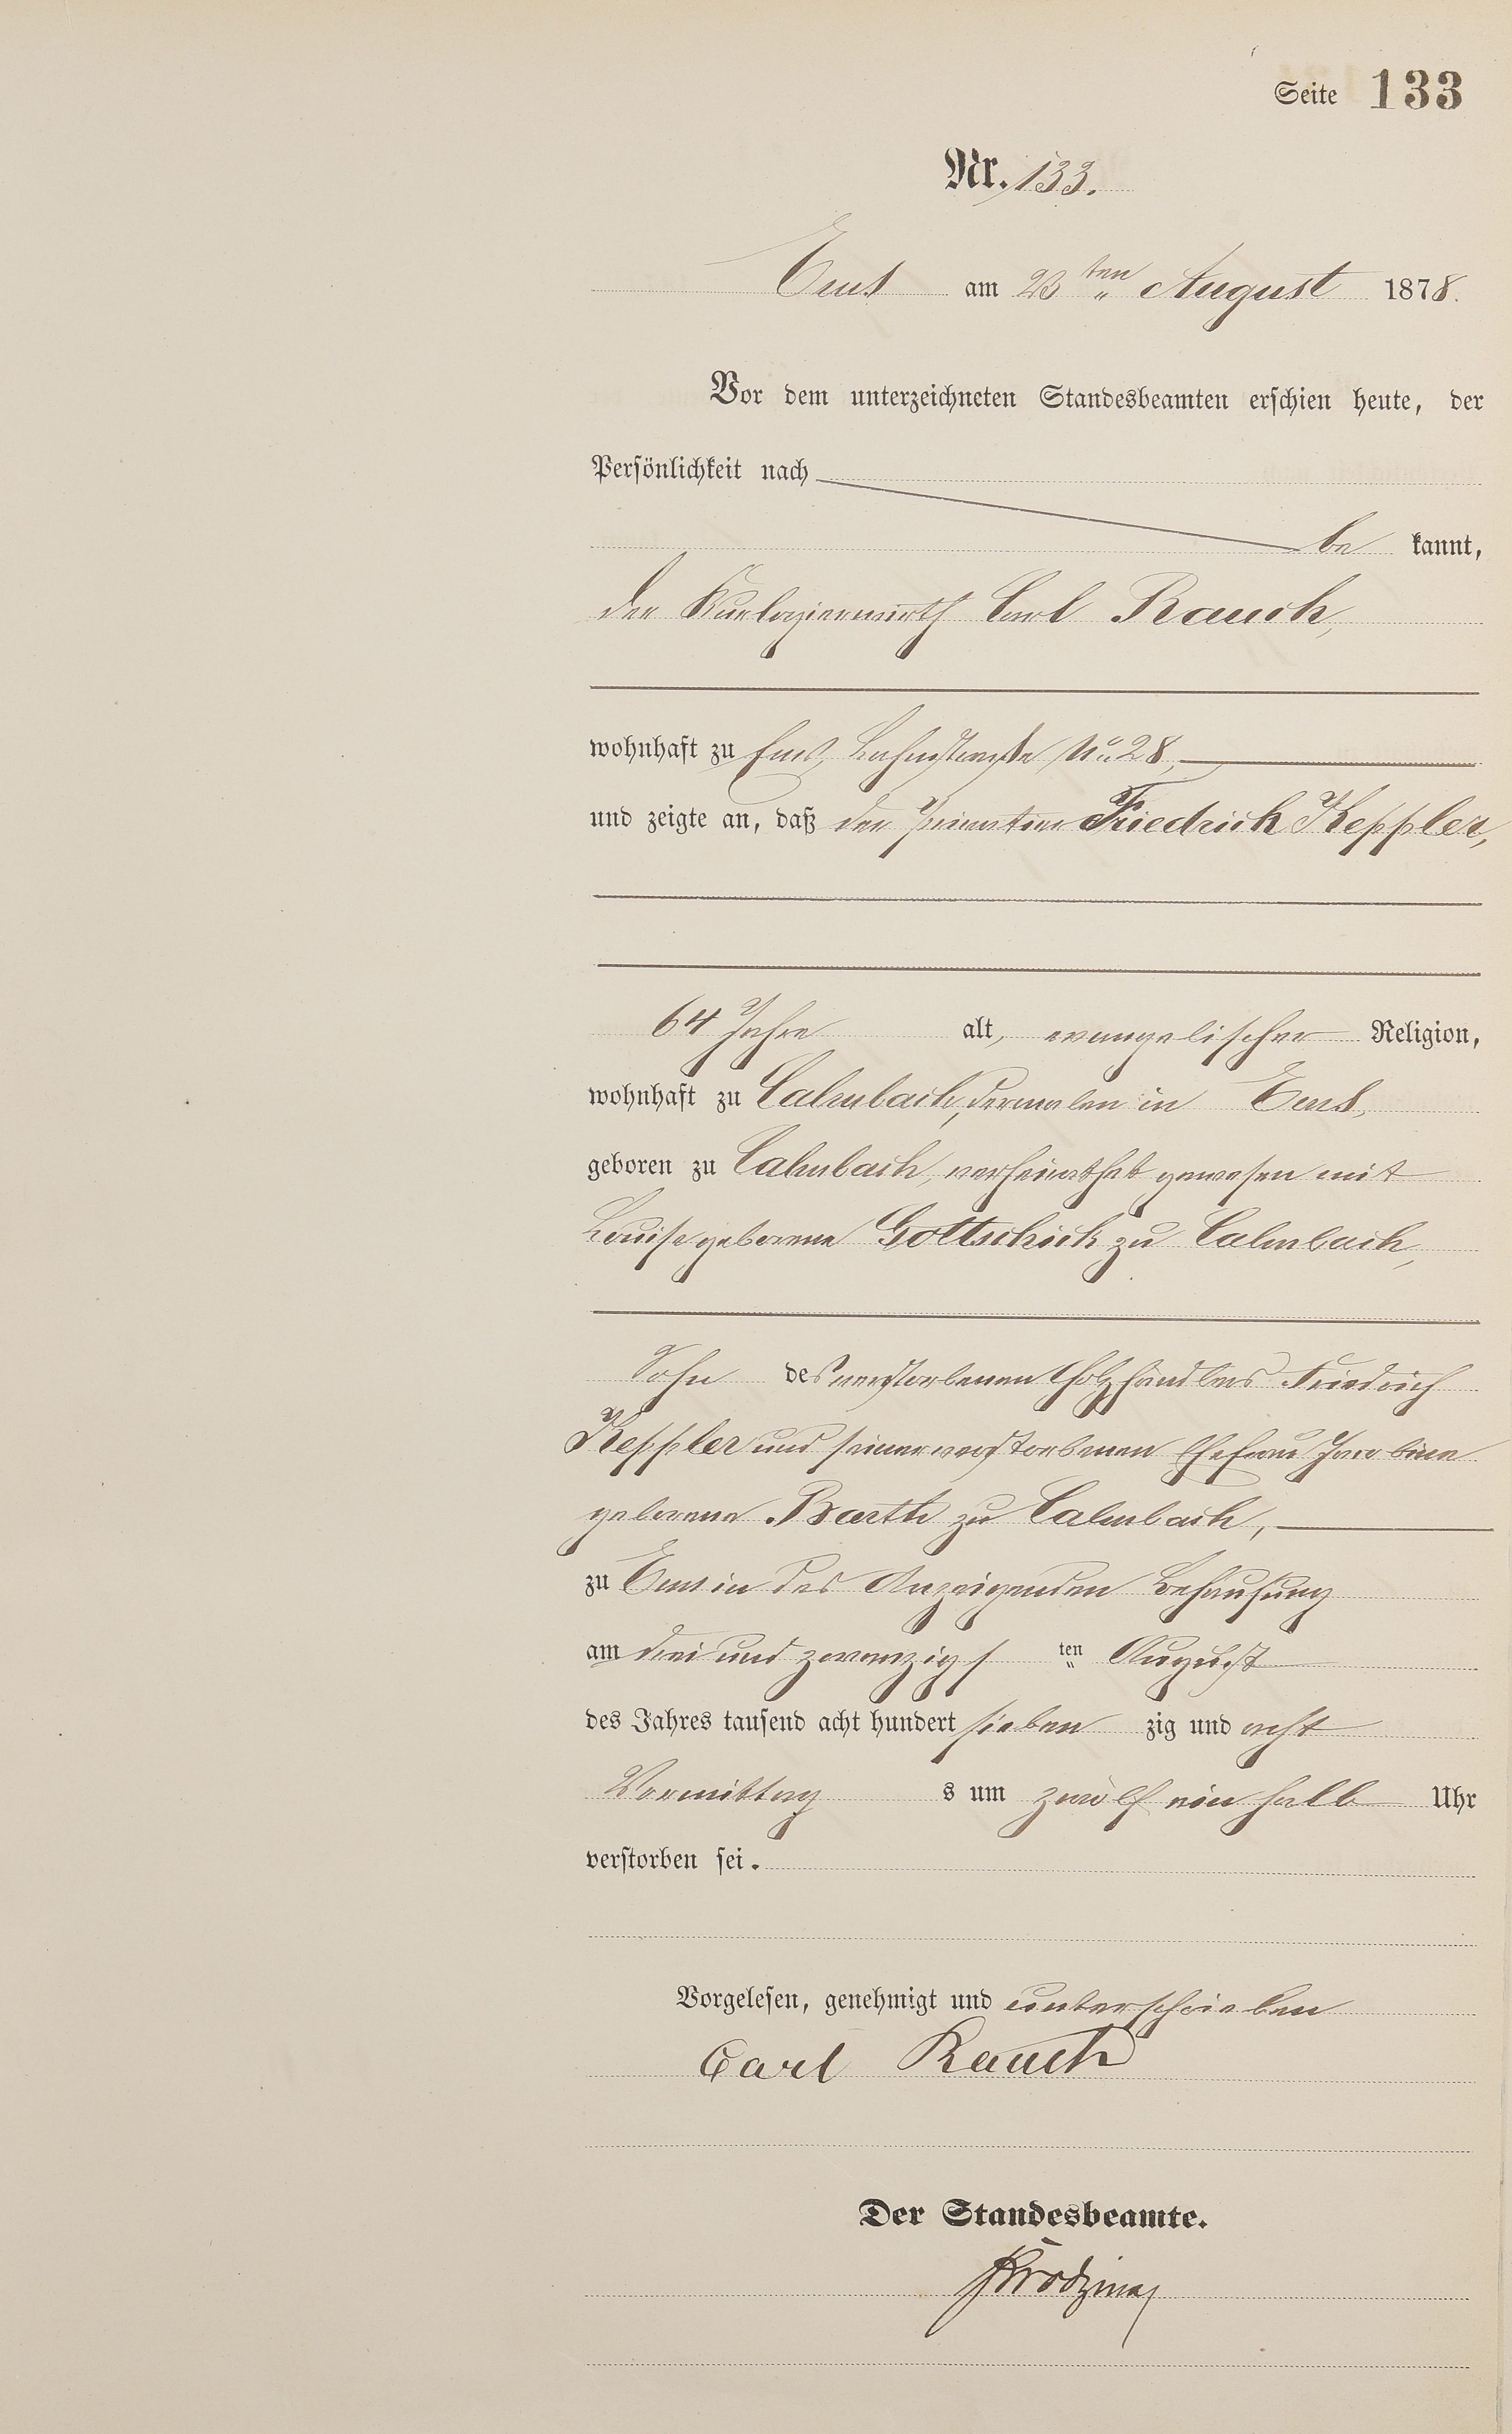 Seite 133
Nr. 133.
Ems am 23ten August 1878.
Vor dem unterzeichneten Standesbeamten erschien heute, der
Persönlichkeit nach
be kannt,
der Kurlogierwirth Carl Rauch,
wohnhaft zu Ems, Lahnstraße No. 28,
und zeigte an, daß der Privatier Friedrich Keppler,
64 Jahre alt, evangelischer Religion,
wohnhaft zu Calmbach, dermalen in Ems,
geboren zu Calmbach, verheirathet gewesen mit
Louise geborene Gottschick zu Calmbach,
Sohn des verstorbenen Holzhändlers Friedrich
Keppler und seiner verstorbenen Ehefrau Jacobine
geborene Barth zu Calmbach,
zu Ems in des Anzeigenden Behausung
am drei und zwanzigs ten August
des Jahres tausend acht hundert sieben zig und acht
Vormittag s um zwölf ein halb Uhr
verstorben sei.
Vorgelesen, genehmigt und unterschrieben
Carl Rauch
Der Standesbeamte.